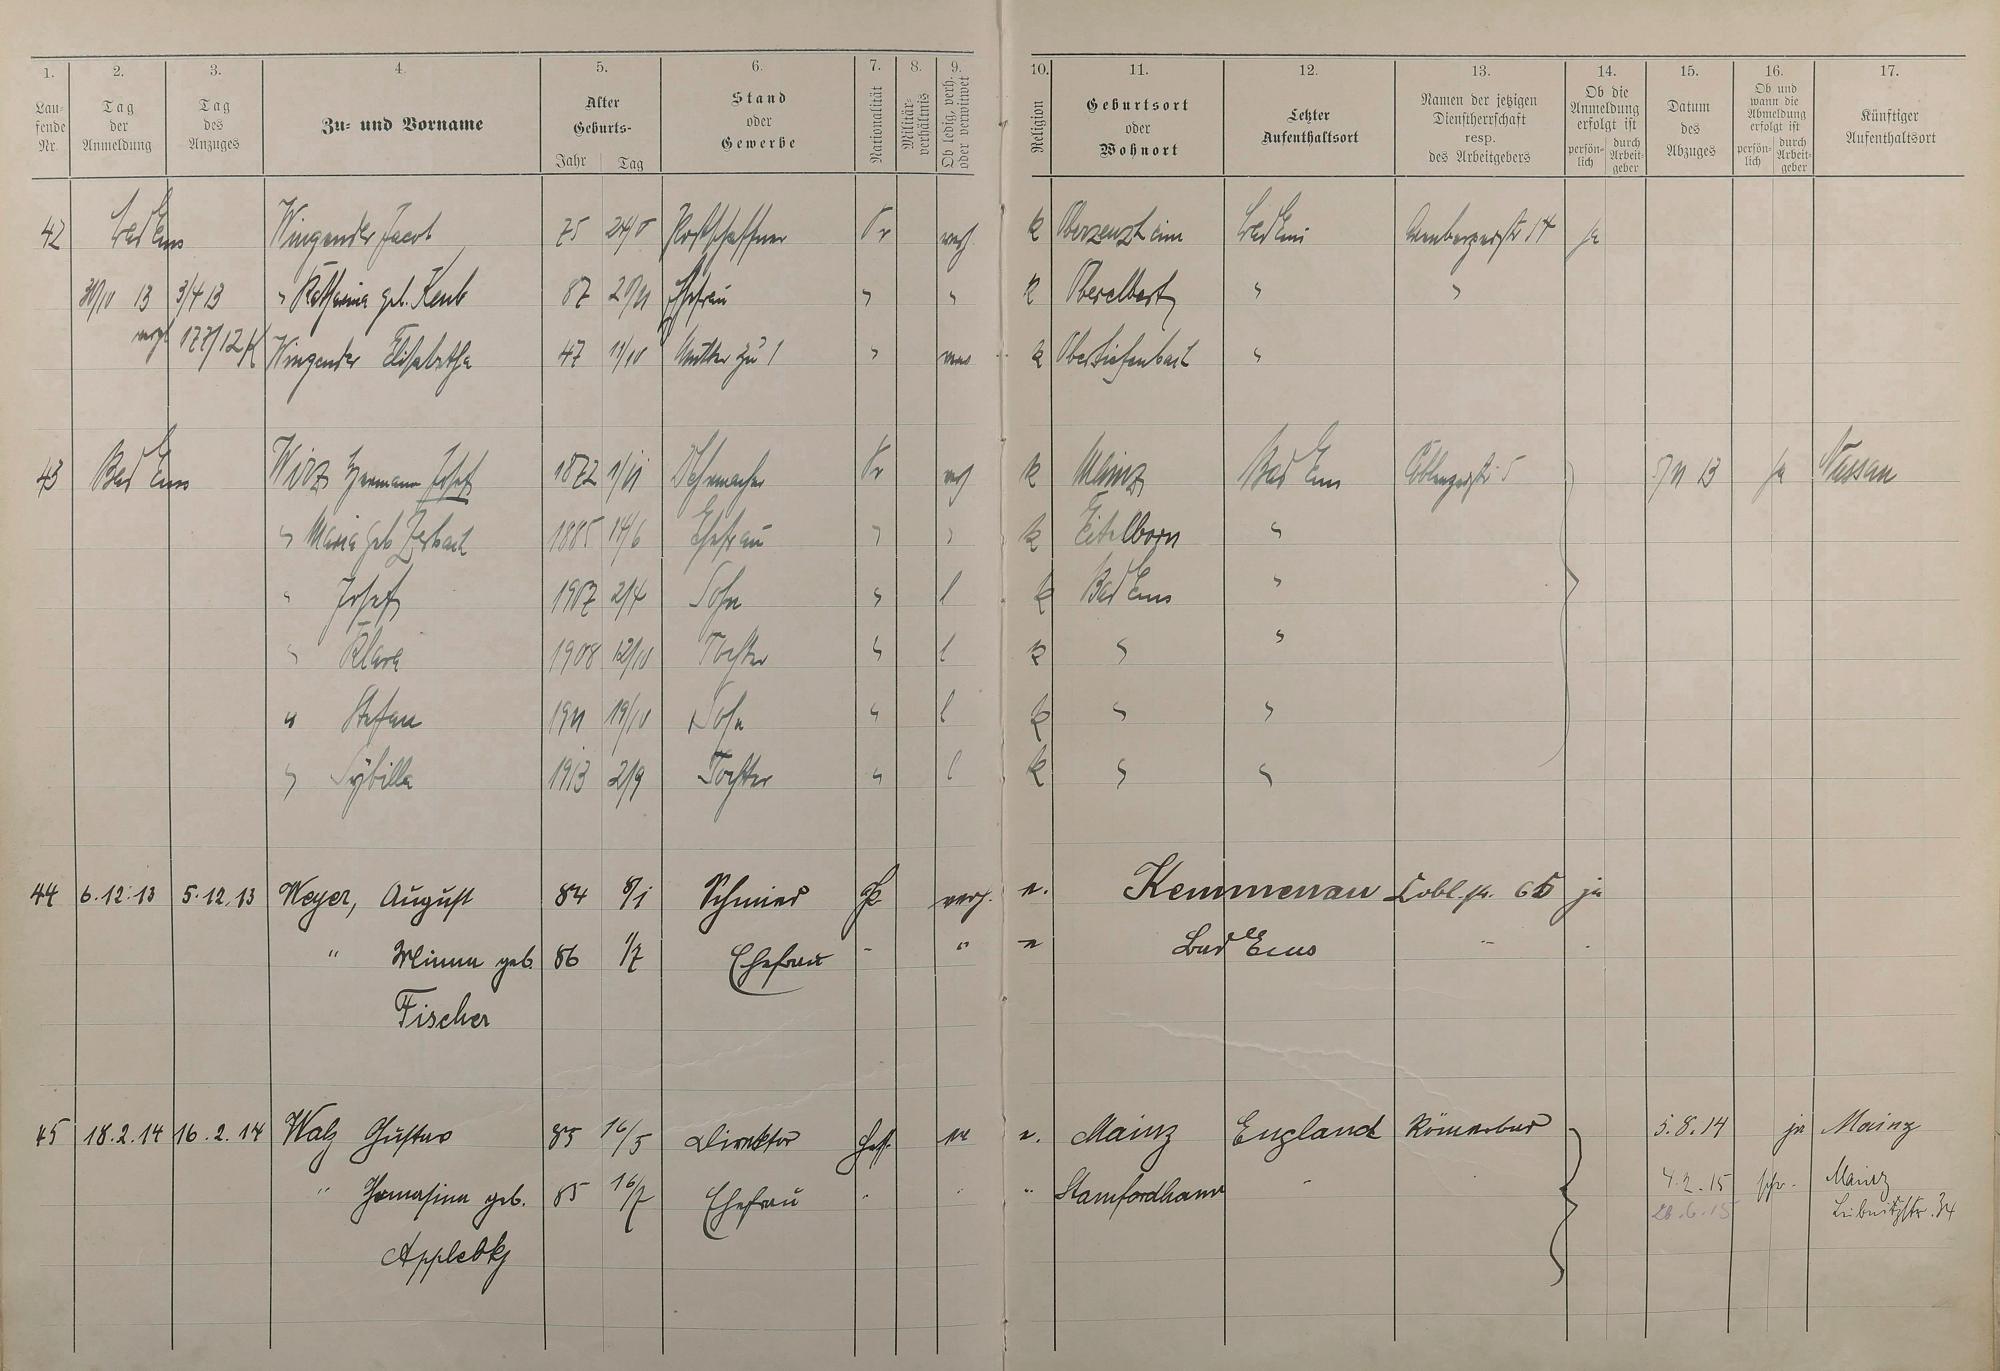 1. 2. 3. 4. 5. 6. 7. 8. 9. 10. 11. 12. 13. 14. 15. 16. 17.
Lau-fende Nr.
Tag der Anmeldung
Tag des Anzuges
Zu- und Vorname
Alter Geburts- Jahr Tag
Stand oder Gewerbe
Nationalität
Militär-verhältnis
Ob ledig, verh. oder verwitwet
Religion
Geburtsort oder Wohnort
Letzter Aufenthaltsort
Namen der jetzigen Dienstherrschaft resp. des Arbeitgebers
Ob die Anmeldung erfolgt ist persön-lich durch Arbeit-geber
Datum des Abzuges
Ob und wann die Abmeldung erfolgt ist persön-lich durch Arbeit-geber
Künftiger Aufenthaltsort
42 Bad Ems Wingender Jacob 75 Postschaffner Pr verh. k Bad Ems 14 ja
13 3/4 13 " Katharina geb. 87 Ehefrau " " k Oberelbert " "
Wingender Elisabetha 47 Mutter zu 1 " k Obertiefenbach "
43 Bad Ems Wirz Hermann Josef 1872 Pr verh k Mainz Bad Ems Coblenzerstr 5 13 ja Nassau
" Maria geb. 1885 14/6 Ehefrau " " k Eitelborn "
" Josef 1907 2/4 Sohn " l k Bad Ems "
" Klara 1908 12/10 Tochter " l k " "
" Stefan 1911 19/10 Sohn " l k " "
" Sybilla 1913 2/9 Tochter " l k " "
44 6.12.13 5.12.13 Weyer, August 84 8/1 Schmied verh. e. Kemmenau Cobl. str. 65 ja
" Minna geb. 86 1/7 Ehefrau - " " Bad Ems " "
Fischer
45 18.2.14 16.2.14 Walz Gustav 85 16/5 Direktor Hess. e. Mainz England Römerbad 5.8.14 ja Mainz
" geb. 85 16/7 Ehefrau " " " Stamfordham " 4.2.15 Mainz
28.6.15 Leibnitzstr. 34
Appleby